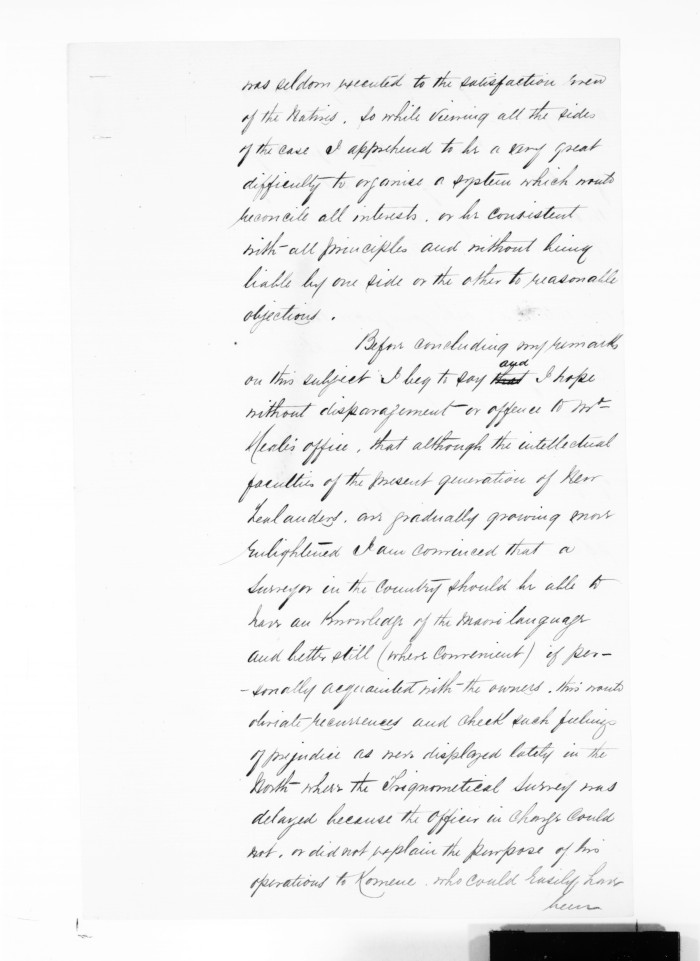 was seldom executed to the satisfaction even
of the Natives. So while viewing all the sides
of the case I apprehend to be a very great
difficulty to organise a system which would
reconcile all interests. or be consistent
with all principles and without being
liable by one side or the other to reasonable
objections.
Before concluding my remarks
on this subject I beg to say that and I hope
without disparagement or offence to Mr
Heale's office, that although the intellectual
faculties of the present generation of New
Zealanders. are gradually growing more
enlightened I am convinced that a
Surveyor in the Country should be able to
have an Knowledge of the Maori language
and better still (where convenient) if per-
-sonally acquainted with the owners. this would
obviate recurrenses and check such feelings
of prejudice as were displayed lately in the
North where the Trignometical Survey was
delayed because the Officer in Charge could
not. or did not explain the purpose of his
operations to Komene. who could easily have
been